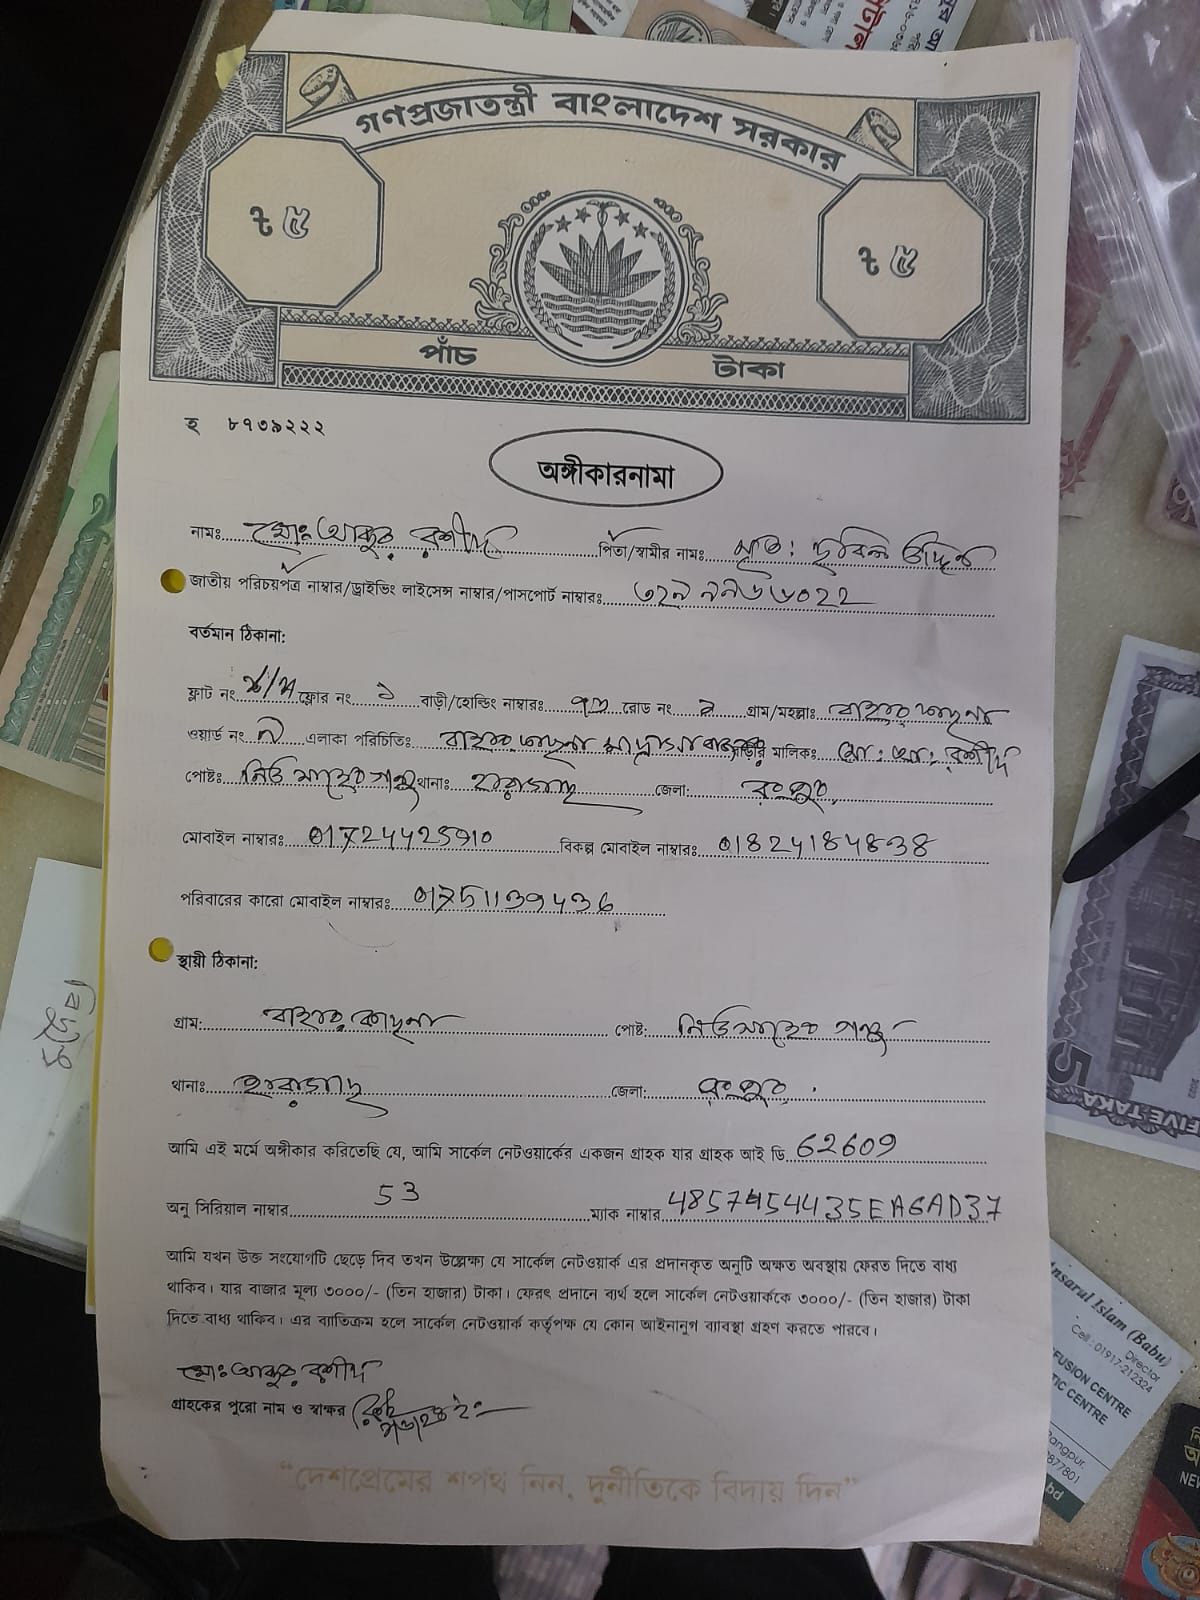 গণপ্রজাতন্ত্রী বাংলাদেশ সরকার
৳ ৫
৳ ৫
পাঁচ টাকা
হ ৮৭৩৯২২২
অঙ্গীকারনামা
নামঃ মোঃ আব্দুর রশীদ পিতা/স্বামীর নামঃ মৃত: উদ্দিন
জাতীয় পরিচয়পত্র নাম্বার/ড্রাইভিং লাইসেন্স নাম্বার/পাসপোর্ট নাম্বারঃ
বর্তমান ঠিকানা:
ফ্লাট নং ফ্লোর নং ১ বাড়ী/হোল্ডিং নাম্বারঃ রোড নং গ্রাম/মহল্লাঃ বাহার কাছনা
ওয়ার্ড নং এলাকা পরিচিতিঃ বাহার কাছনা বাড়ীর মালিকঃ মো: আ: রশীদ
পোষ্টঃ নিউ সাহেব গঞ্জ থানাঃ হারাগাছ জেলা: রংপুর
মোবাইল নাম্বারঃ 01724425910 বিকল্প মোবাইল নাম্বারঃ 01824184838
পরিবারের কারো মোবাইল নাম্বারঃ 01751139436
স্থায়ী ঠিকানা:
গ্রাম: বাহার কাছনা পোষ্ট: নিউ সাহেব গঞ্জ
থানাঃ হারাগাছ জেলা: রংপুর
আমি এই মর্মে অঙ্গীকার করিতেছি যে, আমি সার্কেল নেটওয়ার্কের একজন গ্রাহক যার গ্রাহক আই ডি 62609
অনু সিরিয়াল নাম্বার 53 ম্যাক নাম্বার 4857454435EA6AD37
আমি যখন উক্ত সংযোগটি ছেড়ে দিব তখন উল্লেক্ষ্য যে সার্কেল নেটওয়ার্ক এর প্রদানকৃত অনুটি অক্ষত অবস্থায় ফেরত দিতে বাধ্য
থাকিব। যার বাজার মূল্য ৩০০০/- (তিন হাজার) টাকা। ফেরৎ প্রদানে ব্যর্থ হলে সার্কেল নেটওয়ার্ককে ৩০০০/- (তিন হাজার) টাকা
দিতে বাধ্য থাকিব। এর ব্যতিক্রম হলে সার্কেল নেটওয়ার্ক কর্তৃপক্ষ যে কোন আইনানুগ ব্যাবস্থা গ্রহণ করতে পারবে।
মোঃ আব্দুর রশীদ
গ্রাহকের পুরো নাম ও স্বাক্ষর
“দেশপ্রেমের শপথ নিন, দুর্নীতিকে বিদায় দিন”
FIVE TAKA
5
Ansarul Islam (Babu)
Director
Cell : 01917-212324
FUSION CENTRE
TIC CENTRE
Rangpur.
877801